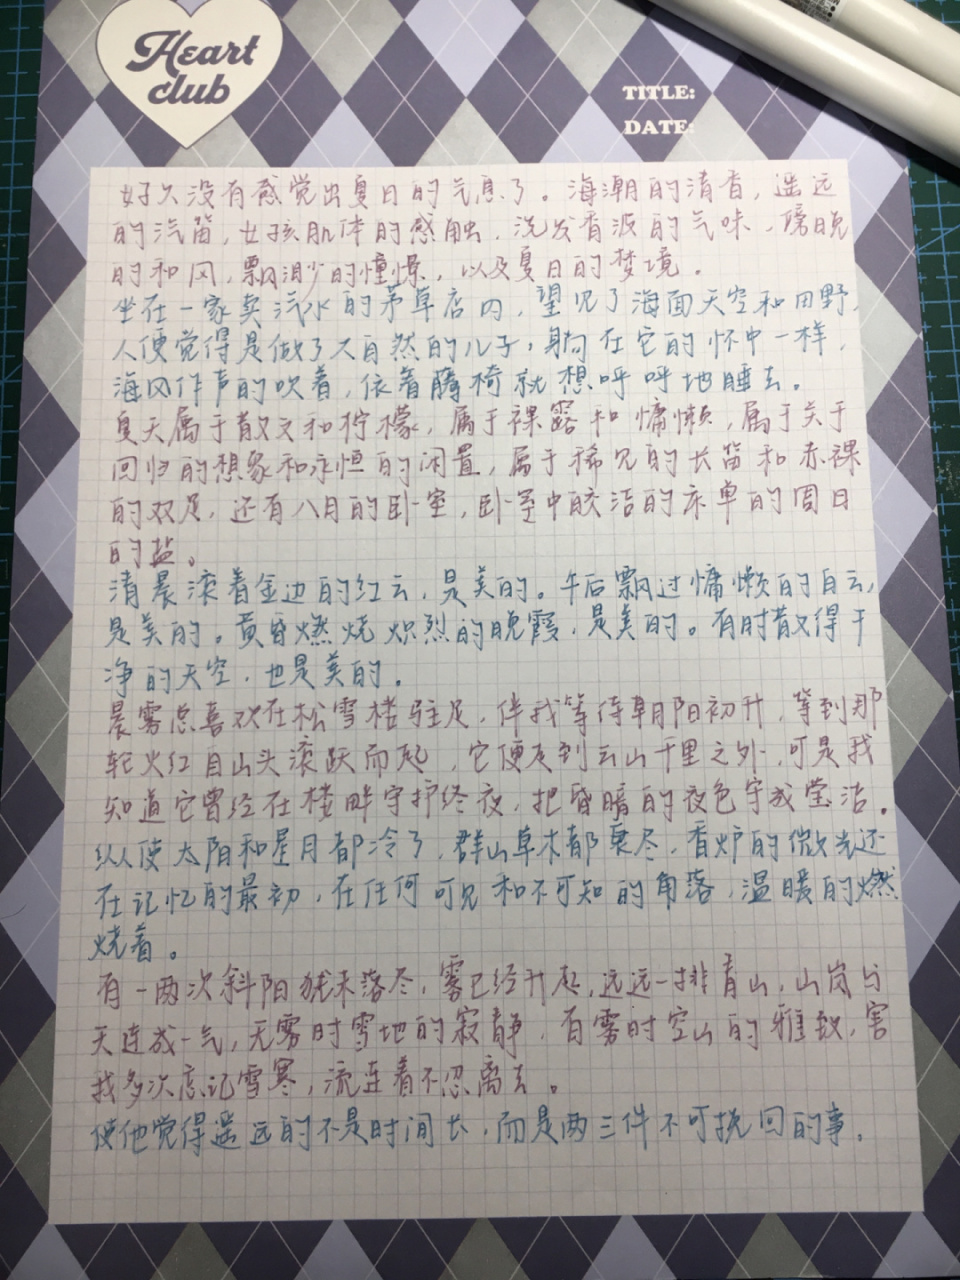 Heart
club
TITLE:
DATE:
好久没有感觉出夏日的气息了。海潮的清香，遥远
的汽笛，女孩肌体的感触，洗发香波的气味，傍晚
的和风，飘渺的憧憬，以及夏日的梦境。
坐在一家卖汽水的茅草店内，望见了海面天空和田野，
人便觉得是做了大自然的儿子，躺在它的怀中一样，
海风作声的吹着，依着藤椅就想呼呼地睡去。
夏天属于散文和柠檬，属于裸露和慵懒，属于关于
回归的想象和永恒的闲置，属于稀见的长笛和赤裸
的双足，还有八月的卧室，卧室中皎洁的床单的周日
的盐。
清晨滚着金边的红云，是美的。午后飘过慵懒的白云，
是美的。黄昏燃烧炽烈的晚霞，是美的。有时散得干
净的天空，也是美的。
晨雾总喜欢在松雪楼驻足，伴我等待朝阳初升，等到那
轮火红自山头滚跃而起，它便走到云山千里之外，可是我
知道它曾经在楼畔守护终夜，把昏暗的夜色守成莹洁。
纵使太阳和星月都冷了，群山草木都衰尽，香炉的微光还
在记忆的最初，在任何可见和不可知的角落，温暖的燃
烧着。
有一两次斜阳犹未落尽，雾已经升起，远远一排青山，山岚与
天连成一气，无雾时雪地的寂静，有雾时空山的雅致，害
我多次忘记雪寒，流连着不忍离去。
使他觉得遥远的不是时间长，而是两三件不可挽回的事。